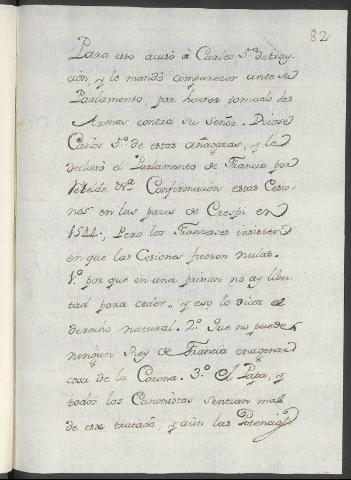 82
Para esto acusó à Carlos 5.º de tray-
cion, y le mandó comparecer ante su
Parlamento, por haver tomado las
Armas contra su Señor. Riose
Carlos 5.º de estas añagazas, y le
declaró el Parlamento de Francia por
rebelde. Confirmaron estas Cesio-
nes en las paces de Crespi en
1544., Pero los Franceses insistieron
en que las Cesiones fueron nulas.
1.º por que en una prision no ay liber-
tad para ceder, y eso lo dicta el
derecho natural. 2.º Que no puede
ningun Rey de Francia enagenar
cosa de la Corona. 3.º el Papa, y
todos los Canonistas sentian mal
de este tratado, y aún las Potencias